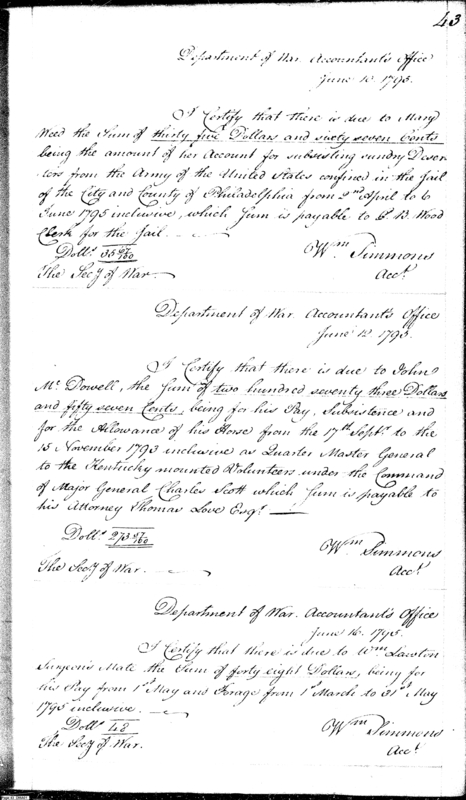 43
Department of War Accountant's Office
June 10. 1795.
I Certify that there is due to Mary
Weed the Sum of thirty five Dollars and sixty seven Cents
being the amount of her Account for subsisting sundry Deser-
ters from the Army of the United States confined in the Jail
of the City and County of Philadelphia from 2nd April to 6
June 1795 inclusive, which Sum is payable to B. Wood
Clerk for the Jail.
Dolls. 35 67/100
Wm Simmons
Acct.
The Secy of War.
Department of War Accountant's Office
June 1795.
I Certify that there is due to John
Mc. Dowell, the Sum of two hundred seventy three Dollars
and fifty seven Cents, being for his Pay, Subsistence and
for the Allowance of his Horse from the 17th Septr. to the
15 November 1793 inclusive as Quarter Master General
to the Kentucky mounted Volunteers under the Command
of Major General Charles Scott which Sum is payable to
his Attorney Thomas Love Esqr.
Dolls. 273 57/100
Wm Simmons
Acct.
The Secy of War.
Department of War Accountant's Office
June 16. 1795.
I Certify that there is due to Wm Lawton
Surgeon's Mate the Sum of forty eight Dollars, being for
his Pay from 1st May and Forage from 1st March to 31st May
1795 inclusive.
Dolls. 48
Wm Simmons
Acct.
The Secy of War.